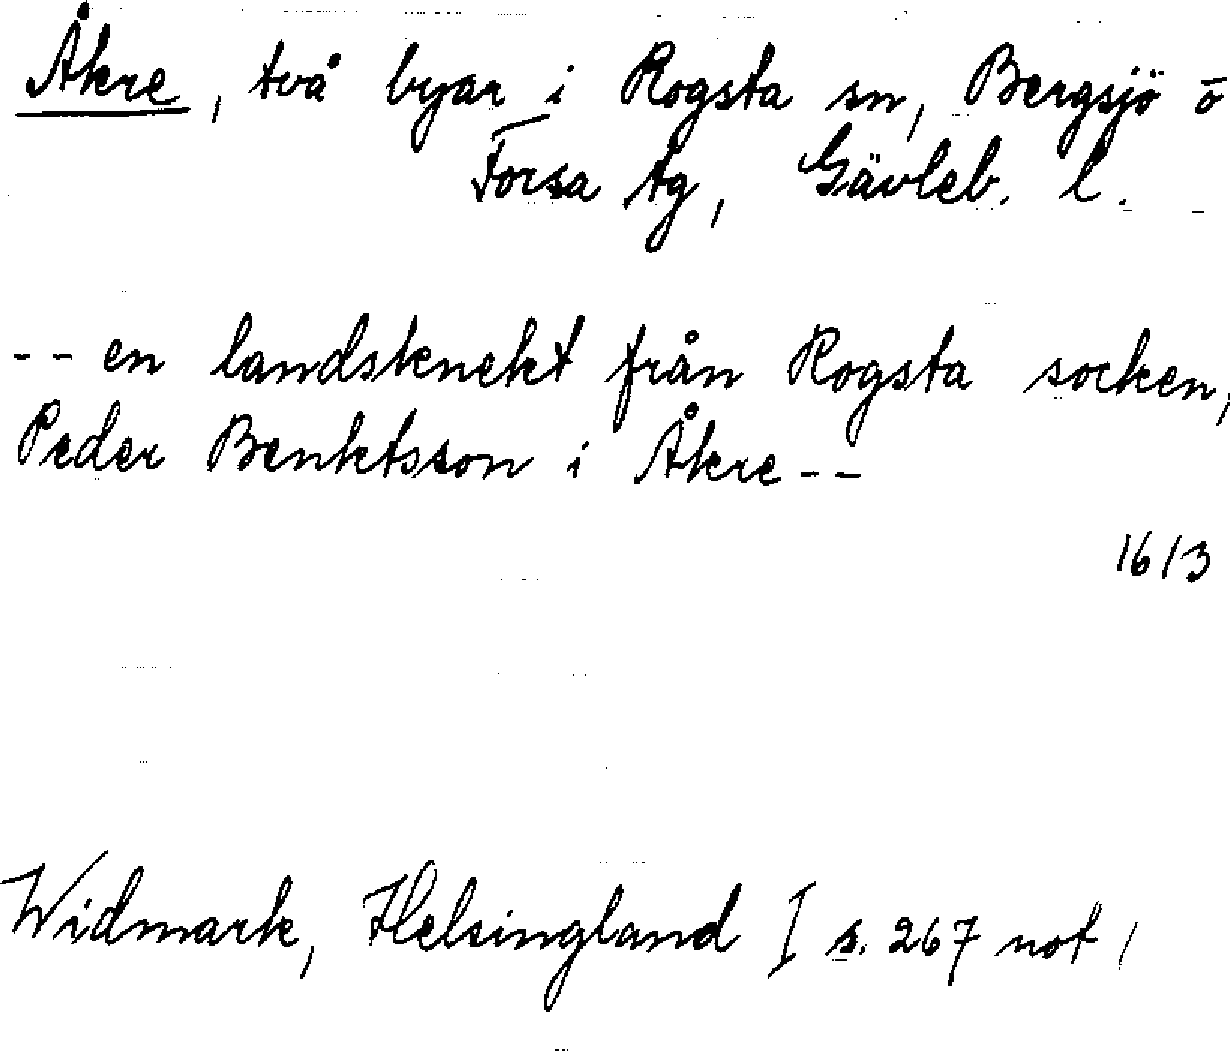 Åkre, två byar i Rogsta sn, Bergsjö o
Forsa tg, Gävleb. l.
-- en landsknekt från Rogsta socken,
Peder Benktsson i Åkre --
1613
Widmark, Helsingland I s. 267 not 1